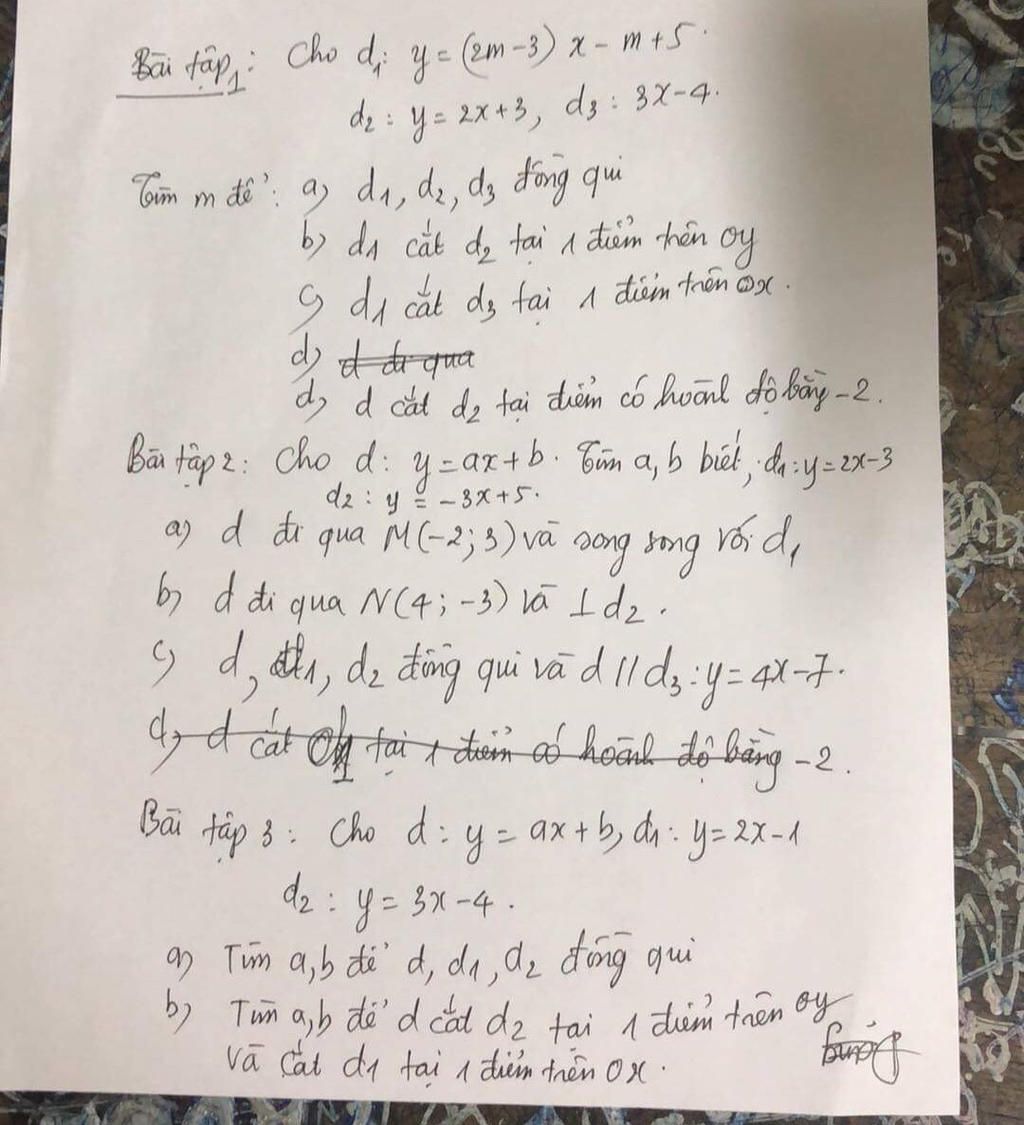 Bài tập 1: Cho d1: y = (2m-3) x - m+5.
d2: y = 2x+3, d3: 3x-4.
Tìm m để: a) d1, d2, d3 đồng qui
b) d1 cắt d2 tại 1 điểm trên oy
c) d1 cắt d3 tại 1 điểm trên ox.
d) d đi qua
d) d cắt d2 tại điểm có hoành độ bằng -2.
Bài tập 2: Cho d: y = ax+b. Tìm a, b biết, d1: y = 2x-3
d2: y = -3x+5.
a) d đi qua M(-2; 3) và song song với d1
b) d đi qua N(4; -3) và ⊥ d2.
c) d, d1, d2 đồng qui và d // d3: y = 4x-7.
d) d cắt tại 1 điểm có hoành độ bằng -2.
Bài tập 3: Cho d: y = ax+b, d1: y = 2x-1
d2: y = 3x-4.
a) Tìm a, b để d, d1, d2 đồng qui
b) Tìm a, b để d cắt d2 tại 1 điểm trên oy
và cắt d1 tại 1 điểm trên Ox.